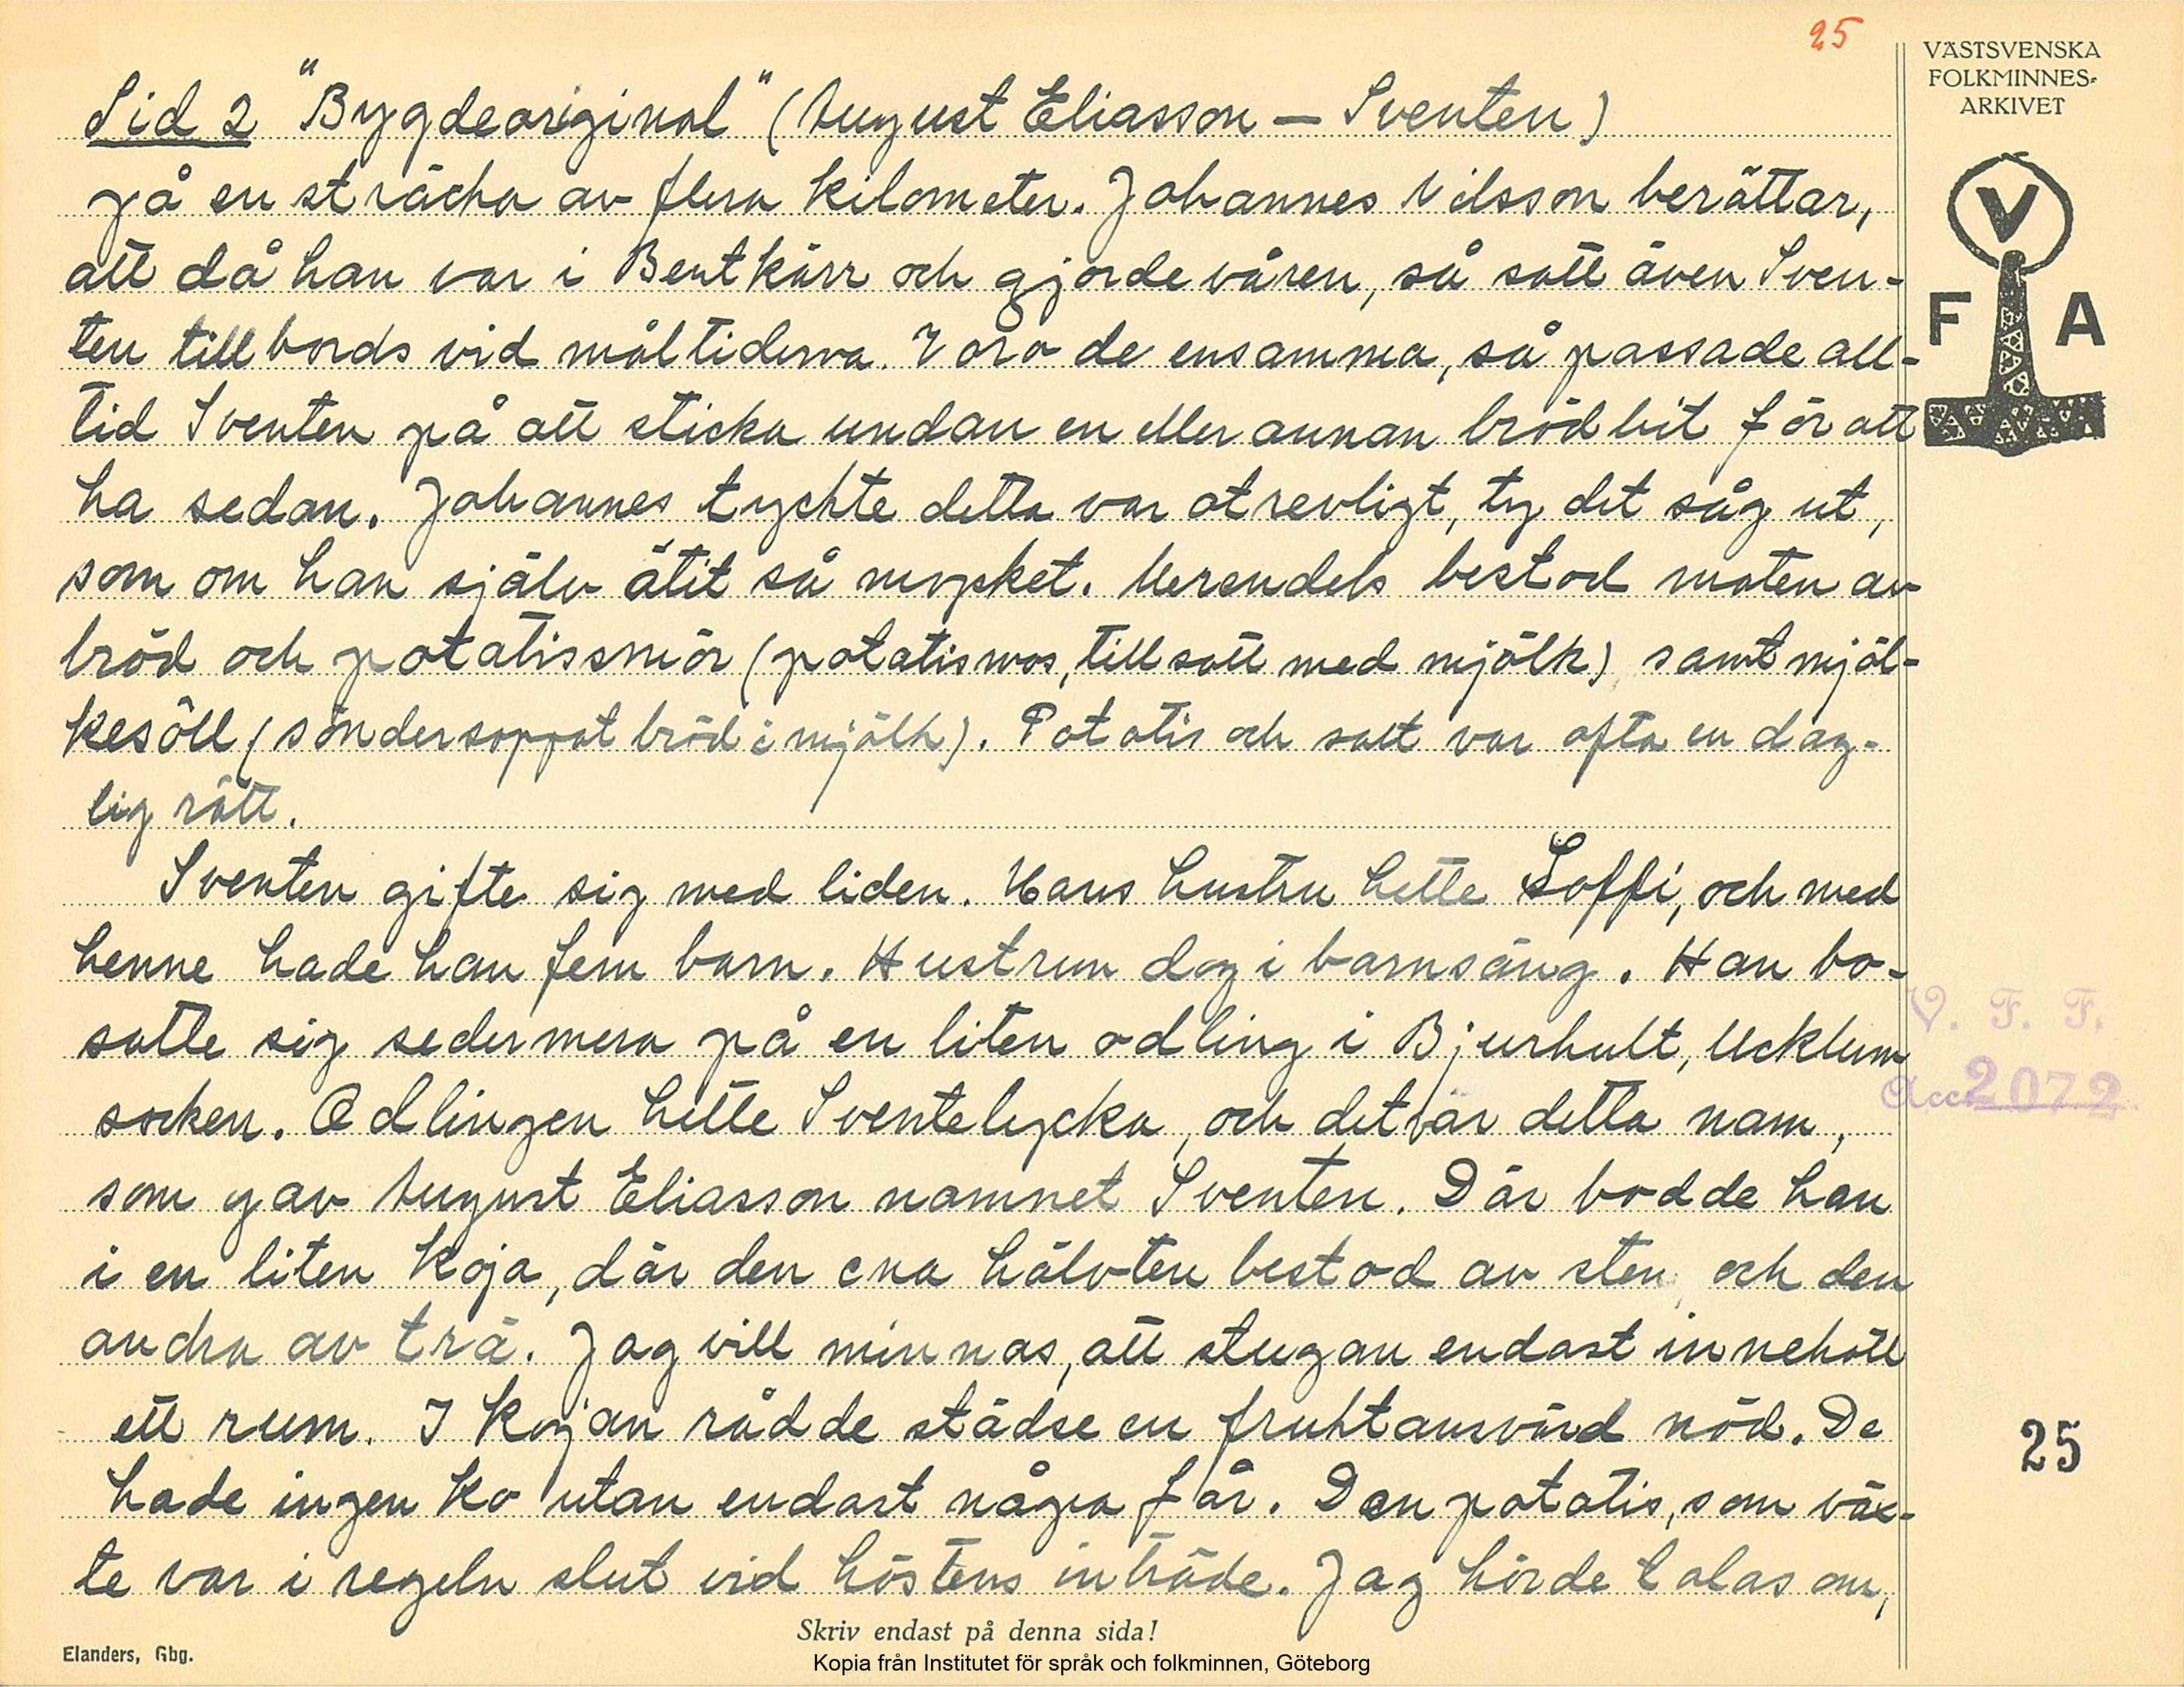 25
VÄSTSVENSKA
FOLKMINNES-
ARKIVET
V
F A
Sid 2 "Bygdeoriginal" (August Eliasson — Sventen)
på en sträcka av flera kilometer. Johannes Nilsson berättar,
att då han var i Bentkärr och gjorde våren, så satt även Sven-
ten till bords vid måltiderna. Voro de ensamma, så passade all-
tid Sventen på att sticka undan en eller annan brödbit för att
ha sedan. Johannes tyckte detta var otrevligt, ty det såg ut,
som om han själv ätit så mycket. Merendels bestod maten av
bröd och potatissmör (potatismos, tillsatt med mjölk) samt mjöl-
kesöll (söndersoppat bröd i mjölk). Potatis och salt var ofta en dag-
lig rätt.
Sventen gifte sig med liden. Hans hustru hette Soffi, och med
henne hade han fem barn. Hustrun dog i barnsäng. Han bo-
satte sig sedermera på en liten odling i Bjurhult, Ucklum
socken. Odlingen hette Sventelycka, och det var detta namn,
som gav August Eliasson namnet Sventen. Där bodde han
i en liten koja, där den ena hälvten bestod av sten, och den
andra av trä. Jag vill minnas, att stugan endast innehöll
ett rum. I kojan rådde städse en fruktansvärd nöd. De
hade ingen ko utan endast några får. Den potatis, som väx-
te var i regeln slut vid höstens inträde. Jag hörde talas om,
V. F. F.
Acc. 2072
25
Skriv endast på denna sida!
Elanders, Gbg.
Kopia från Institutet för språk och folkminnen, Göteborg